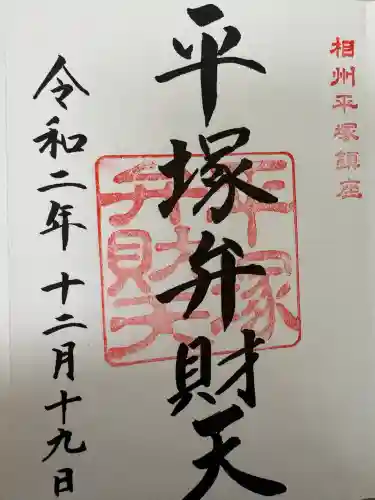 相州平塚鎮座
平塚弁財天
平塚
弁財天
令和二年 十二月十九日